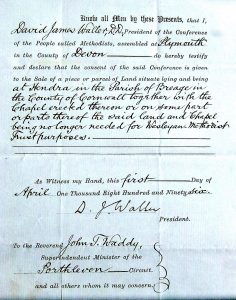 Know all Men by these Presents, that I,
David James Waller, D.D., President of the Conference
of the People called Methodists, assembled at Plymouth
in the County of Devon do hereby testify
and declare that the consent of the said Conference is given
to the Sale of a piece or parcel of Land situate lying and being
at Hendra in the Parish of Breage in
the County of Cornwall together with the
Chapel erected thereon or on some part
or parts thereof the said land and Chapel
being no longer needed for Wesleyan Methodist
Trust purposes.
As Witness my Hand, this first Day of
April One Thousand Eight Hundred and Ninety Six.
D. J. Waller
President.
To the Reverend John T. Waddy,
Superintendent Minister of the
Porthleven Circuit,
and all others whom it may concern.